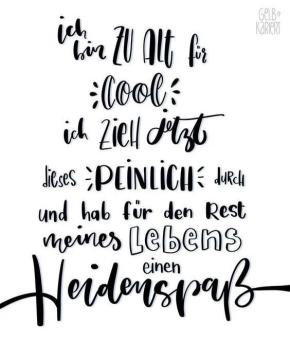 GELB &
KARIERT
ich
bin ZU Alt für
cool
ich ZIEH jetzt
dieses PEINLICH durch
und hab für den Rest
meines Lebens
einen
Heidenspaß